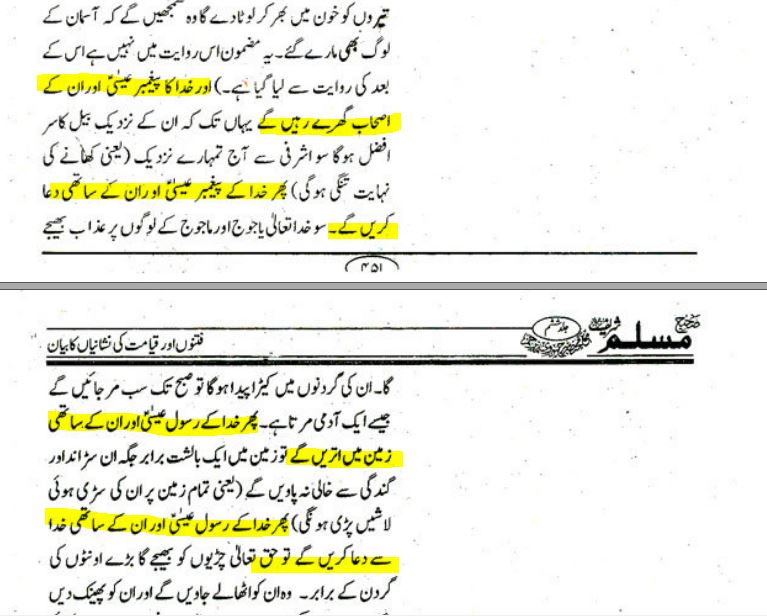 تیروں کو خون میں بھر کر لوٹا دے گا وہ سمجھیں گے کہ آسمان کے
لوگ بھی مارے گئے۔ یہ مضمون اس روایت میں نہیں ہے اس کے
بعد کی روایت سے لیا گیا ہے۔) اور خدا کا پیغمبر عیسیٰؑ اور ان کے
اصحاب گھرے رہیں گے یہاں تک کہ ان کے نزدیک بیل کا سر
افضل ہوگا سو اشرفی سے آج تمہارے نزدیک (یعنی کھانے کی
نہایت تنگی ہوگی) پھر خدا کے پیغمبر عیسیٰؑ اور ان کے ساتھی دعا
کریں گے۔ سو خدا تعالیٰ یاجوج اور ماجوج کے لوگوں پر عذاب بھیجے
۴۵۱
صحیح مسلم شریف
جلد ششم
فتنوں اور قیامت کی نشانیاں کا بیان
گا۔ ان کی گردنوں میں کیڑا پیدا ہوگا تو صبح تک سب مر جائیں گے
جیسے ایک آدمی مرتا ہے۔ پھر خدا کے رسول عیسیٰؑ اور ان کے ساتھی
زمین میں اتریں گے تو زمین میں ایک بالشت برابر جگہ ان سڑاند اور
گندگی سے خالی نہ پاویں گے (یعنی تمام زمین پر ان کی سڑی ہوئی
لاشیں پڑی ہونگی) پھر خدا کے رسول عیسیٰؑ اور ان کے ساتھی خدا
سے دعا کریں گے تو حق تعالیٰ چڑیوں کو بھیجے گا بڑے اونٹوں کی
گردن کے برابر۔ وہ ان کو اٹھا لے جاویں گے اور ان کو پھینک دیں